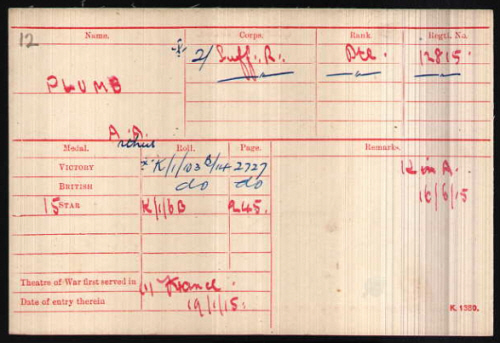 12
Name. Corps. Rank. Regtl. No.
2/ Suff: R: Pte. 12815
PLUMB
A. A.
rthur
Medal. Roll. Page. Remarks.
VICTORY K/1/103 B/14 2727 K in A.
BRITISH do do 16/6/15
15 STAR K/1/6B 245.
Theatre of War first served in (1) France.
Date of entry therein 19/1/15.
K. 1380.